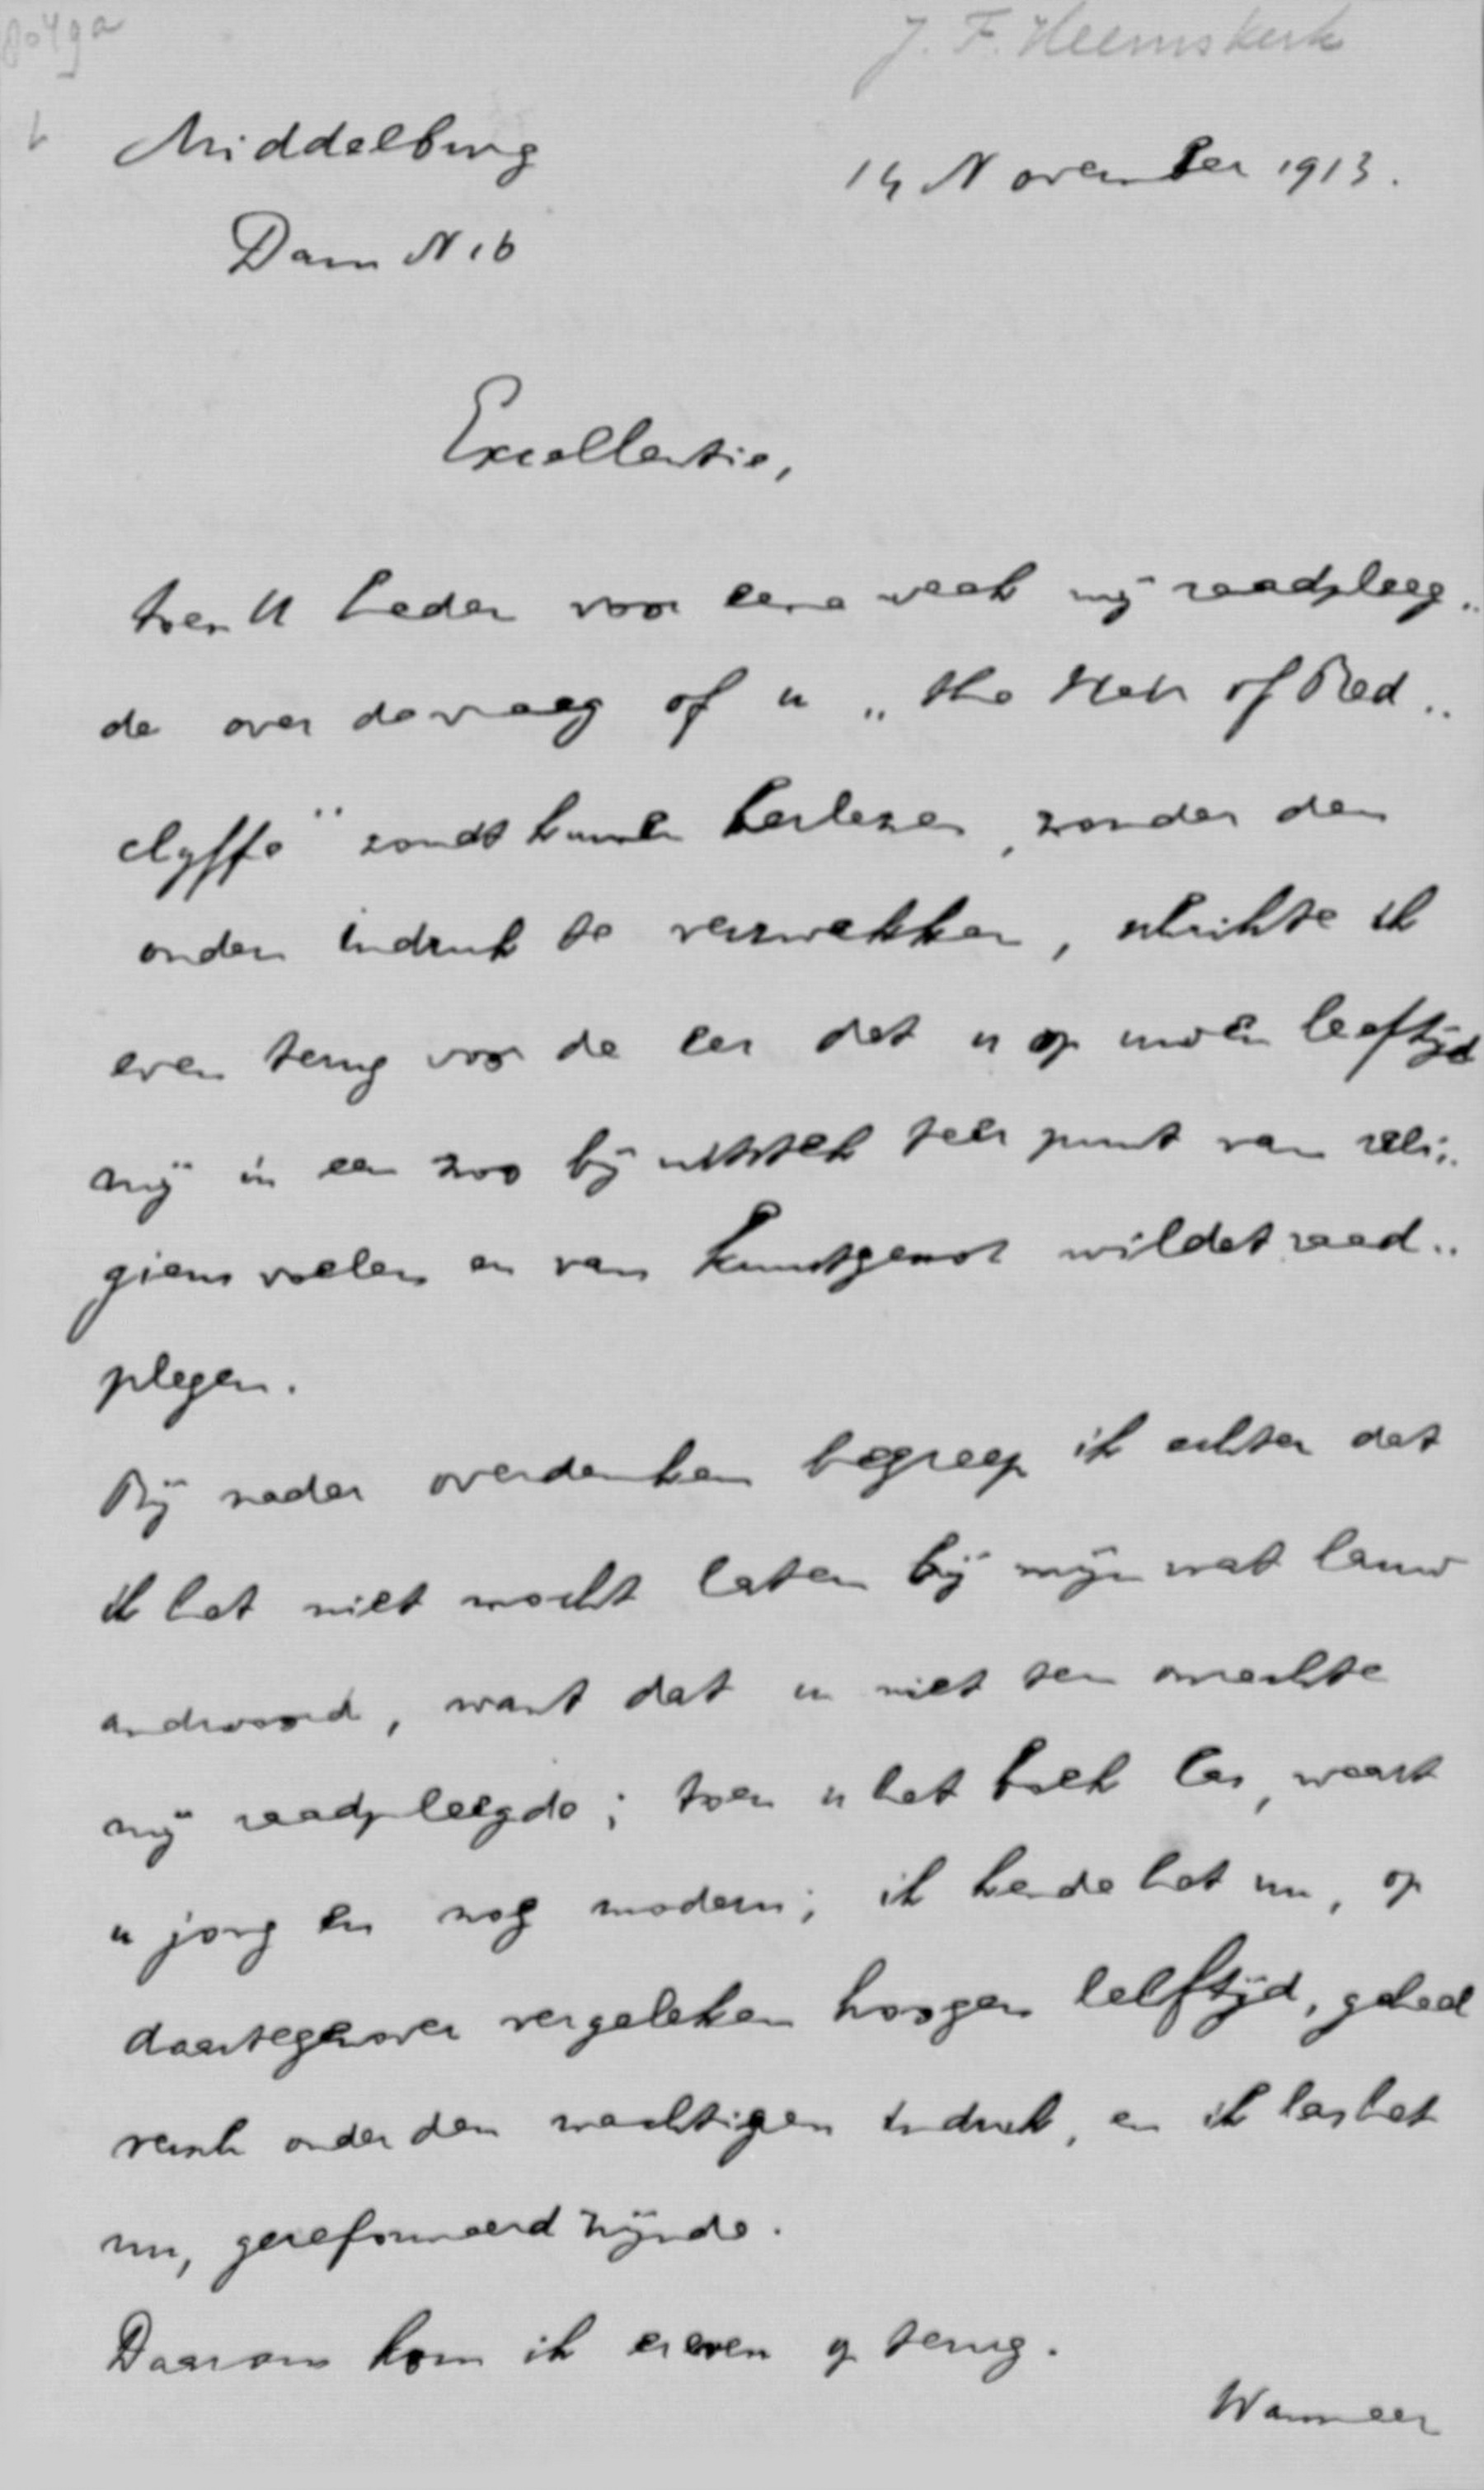 8049a
J. F. Heemskerk
Middelburg
14 November 1913.
Dam N 16
Excellentie,
toen U heden voor eene week mij raadpleeg„
de over de vraag of u „the Heir of Red„
clyffe" zoudt kunnen herlezen, zonder den
ouden indruk te verzwakken, schrikte ik
even terug voor de eer dat u op uwen leeftijd
mij in een zoo bij uitstek teer punt van reli„
gieus voelen en van kunstgenot wildet raad„
plegen.
Bij nader overdenken begreep ik echter dat
ik het niet mocht laten bij mijn wat lauw
andwoord, want dat u niet ten onrechte
mij raadpleegde; toen u het boek las, waart
u jong en nog modern; ik kende het nu, op
daartegenover vergeleken hoogen leeftijd, geheel
versch onder den machtigen indruk, en ik las het
nu, gereformeerd zijnde.
Daarom kom ik er even op terug.
Wanneer